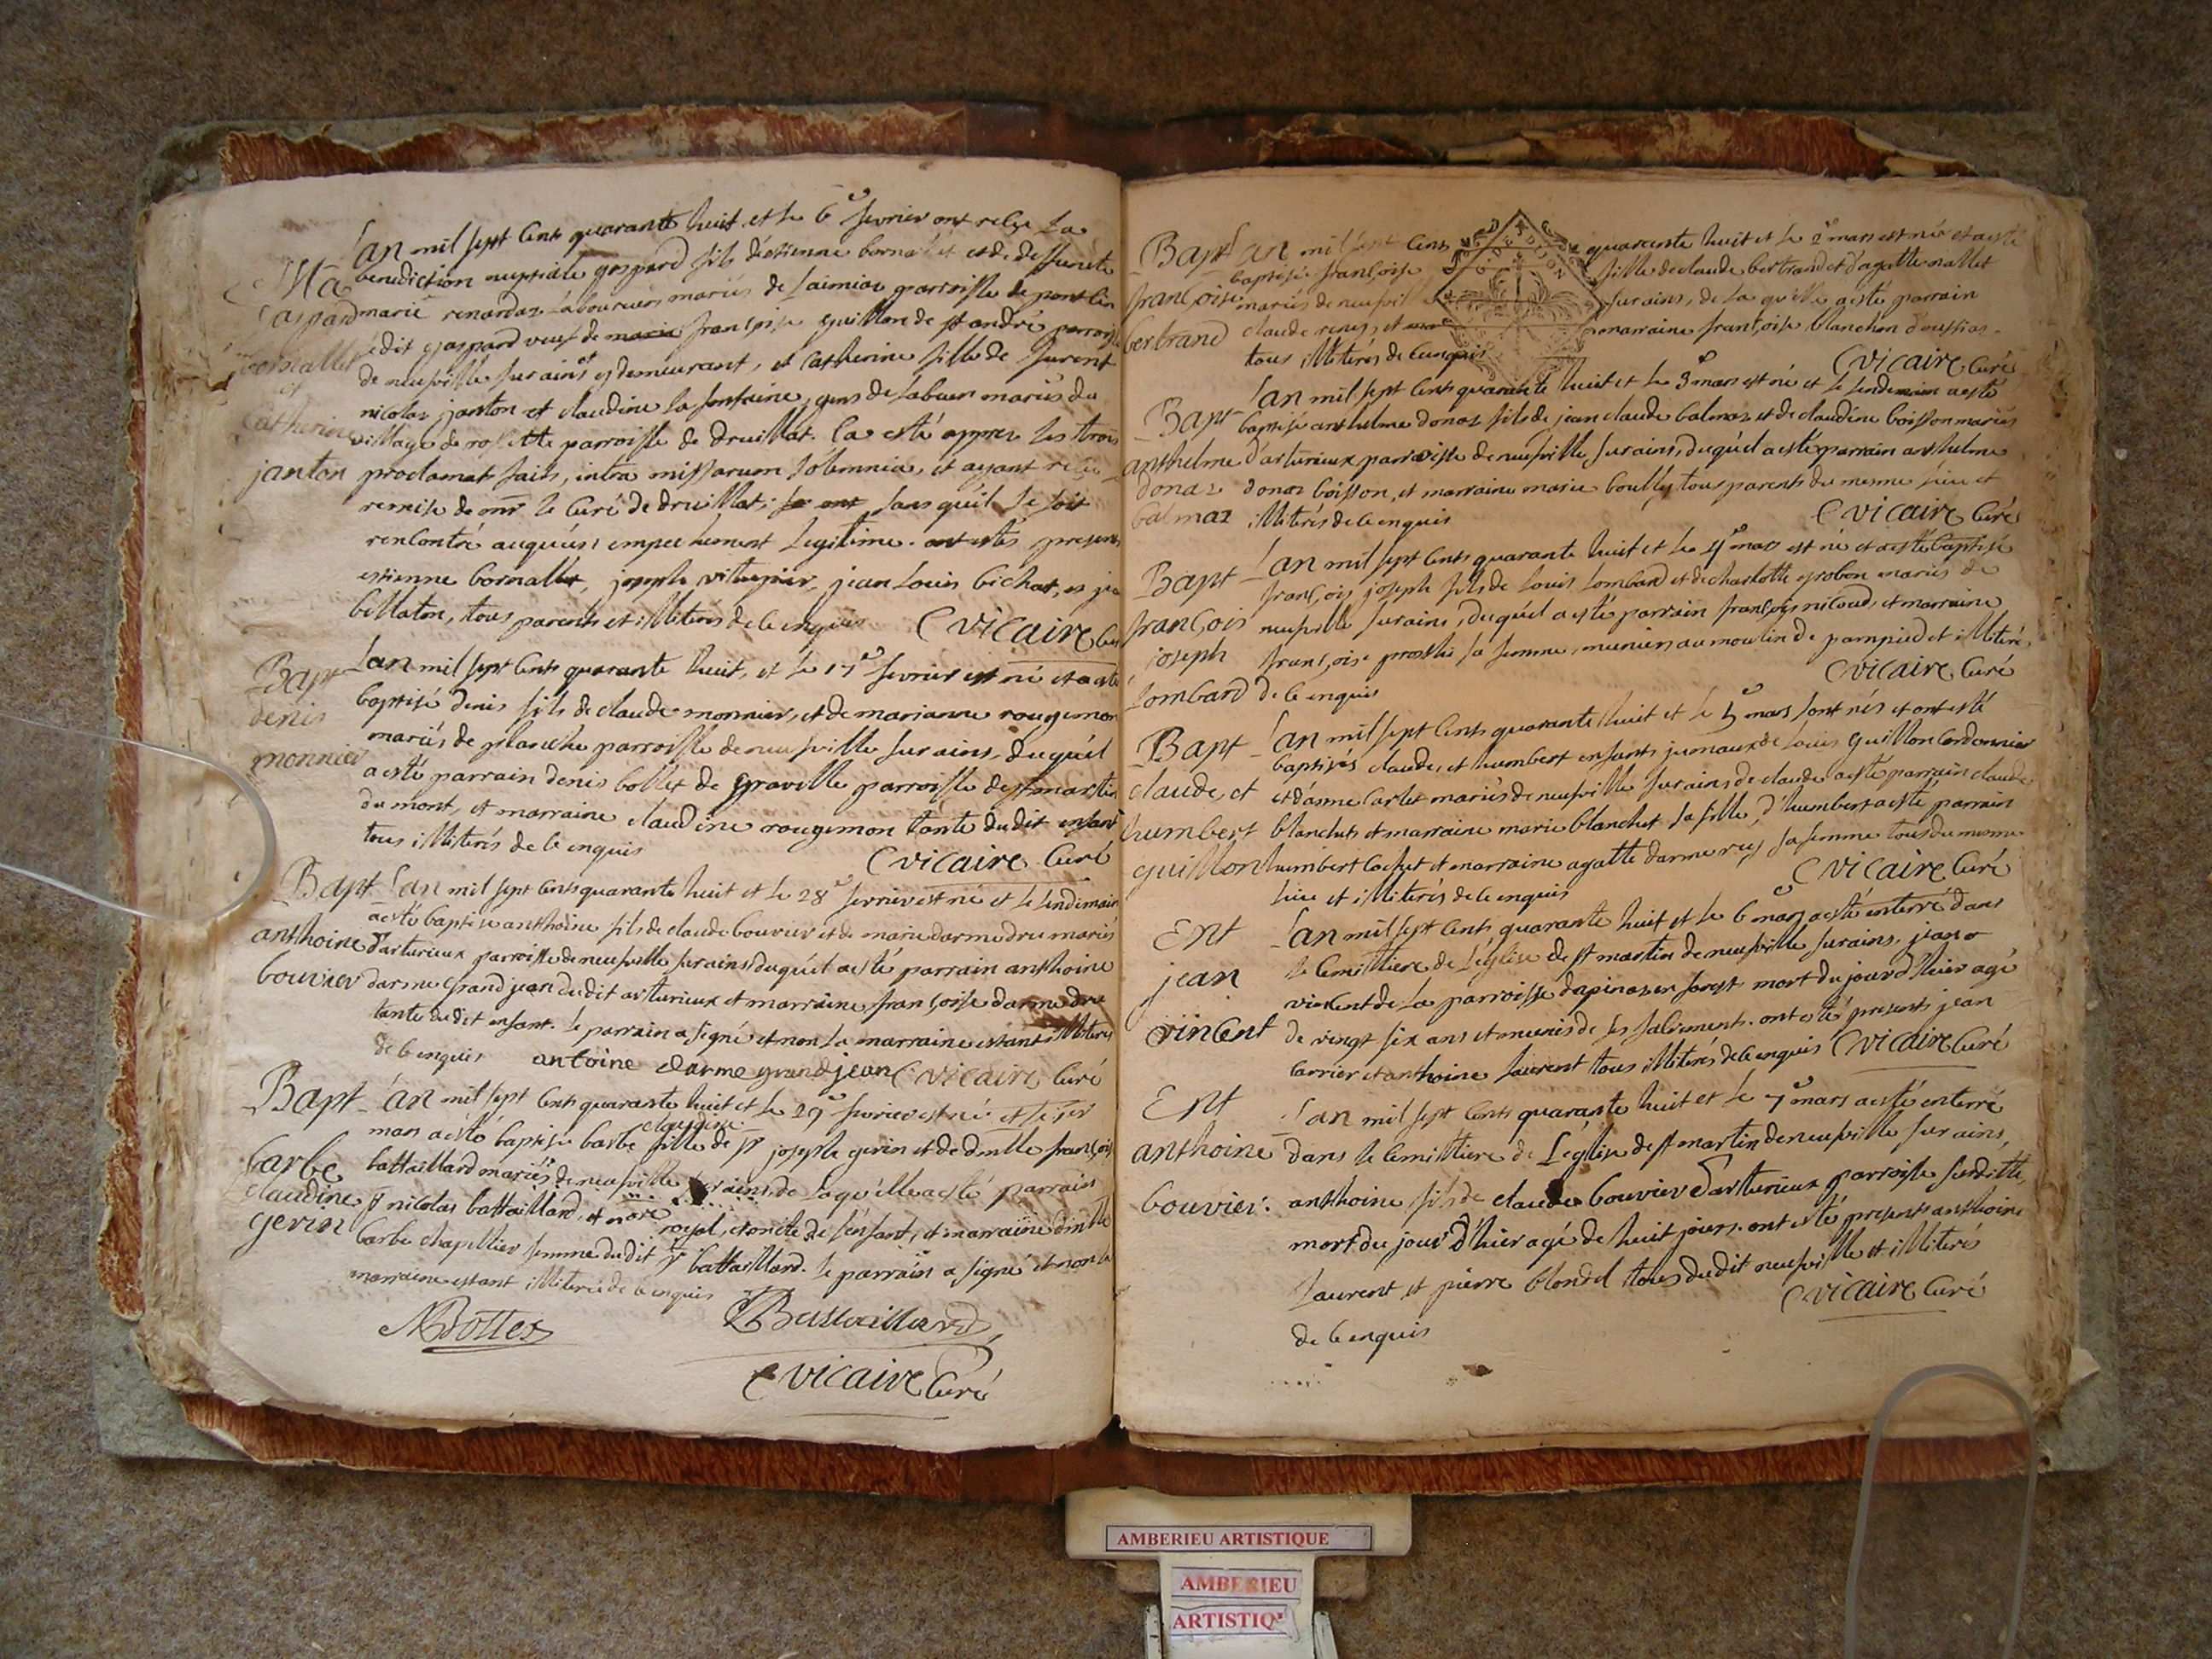 Ma
gaspard
bornallet
et
Catherine
janton
L'an mil sept cents quarante huit, et le 6e fevrier ont reçu la
benediction nuptiale gaspard fils d'estienne bornallet et de deffuncte
marie renardaz laboureurs mariés de paroisse de pont d'ain
ledit gaspard veuf de maria françoise guillon de st andré parroisse
de neufville surains et y demeurant, et Catherine fille de furent
nicolas janton et claudine la fontaine, gens de labeur mariés du
village de rossette parroisse de druillat. Ca esté apprez les trois
proclamats faits, intra missarum solemnia, et ayant reçu
remise de mr le Curé de druillat; se ont sans qu'il se soit
rencontré auqu'un empeschement legitime. ont estés presents
estienne bornallet, joseph vituspier, jean louis bichat, et jean
billaton, tous parents et illiterés de ce enquis C vicaire Curé
Bapt
denis
monnier
L'an mil sept cents quarante huit, et le 17e fevrier est né et a esté
baptisé denis fils de claude monnier, et de marianne rougemon
mariés de planche parroisse de neufville surains, duquél
a esté parrain denis bollet de graville parroisse de st martin
du mont, et marraine claudine rougemon tante dudit enfant
tous illiterés de ce enquis
C vicaire Curé
Bapt
anthoine
bouvier
L'an mil sept cents quarante huit et le 28e fevrier est né et le lendemain
a esté baptisé anthoine fils de claude bouvier et de marie darmedru mariés
d'arturieux parroisse de neufville surains duquél a esté parrain anthoine
darme grand jean dudit arturieux et marraine françoise darmedru
tante dudit enfant. le parrain a signé et non la marraine estant illiterée
de ce enquis antoine darme grand jean C vicaire Curé
Bapt
barbe
claudine
gerin
L'an mil sept cents quarante huit et le 29e fevrier est né et le 1er
claudine
mars a esté baptisée barbe fille de sr joseph gerin et de dmlle françoise
battaillard mariés de neufville surains, de laqu'elle a esté parrain
sr nicolas battaillard, et nore royal, et oncle de l'enfant, et marraine dmlle
barbe chapellier femme dudit sr battaillard. le parrain a signé et non la
marraine estant illiterée de ce enquis
Battaillard
C vicaire Curé
Bapt
françoise
bertrand
L'an mil sept cents quarante huit et le 2e mars est née et a esté
baptisée françoise fille de claude bertrand et d'agatte mallet
mariés de neufville surains, de laqu'elle a esté parrain
claude reney, et marraine françoise blanchon
tous illiterés de ce enquis
C vicaire Curé
Bapt
anthelme
donaz
balmaz
L'an mil sept cents quarante huit et le 3e mars est né et le lendemain a esté
baptisé anthelme donaz fils de jean claude balmaz et de claudine boisson mariés
d'arturieux parroisse de neufville surains, duquél a esté parrain anthelme
donaz boisson, et marraine marie boully tous parents du mesme lieu et
illiterés de ce enquis
C vicaire Curé
Bapt
françois
joseph
lombard
L'an mil sept cents quarante huit et le 4e mars est né et a esté baptisé
françois joseph fils de louis lombard et de charlotte grobon mariés de
neufville surains, duquél a esté parrain françois nicoud, et marraine
françoise sa femme, munier au moulin de pampied et illiterés
de ce enquis
C vicaire Curé
Bapt
claude, et
humbert
guillon
L'an mil sept cents quarante huit et le 5e mars sont nés et ont esté
baptisés claude, et humbert enfants jumaux de louis guillon Cordonnier
et d'anne Carlet mariés de neufville surains de claude a esté parrain claude
blanchet et marraine marie blanchet sa fille, d'humbert a esté parrain
humbert Cochet et marraine agatte darmerey sa femme tous du mesme
lieu et illiterés de ce enquis
C vicaire Curé
Ent
jean
vincent
L'an mil sept cents quarante huit et le 6e mars a esté enterré dans
le Cemittiere de l'église de st martin de neufville surains. jean
vincent de la parroisse en forest mort du jour d'hier agé
de vingt six ans et munis de ses sacrements. ont esté presents jean
Carrier et anthoine laurent tous illiterés de ce enquis C vicaire Curé
Ent
anthoine
bouvier.
L'an mil sept cents quarante huit et le 7e mars a esté enterré
dans le Cemittiere de l'église de st martin de neufville surains,
anthoine fils de claude bouvier d'arturieux parroisse susditte,
mort du jour d'hier agé de huit jours. ont esté presents anthoine
laurent et pierre blondel tous dudit neufville et illiterés
de ce enquis
C vicaire Curé
AMBERIEU ARTISTIQUE
AMBERIEU
ARTISTIQ